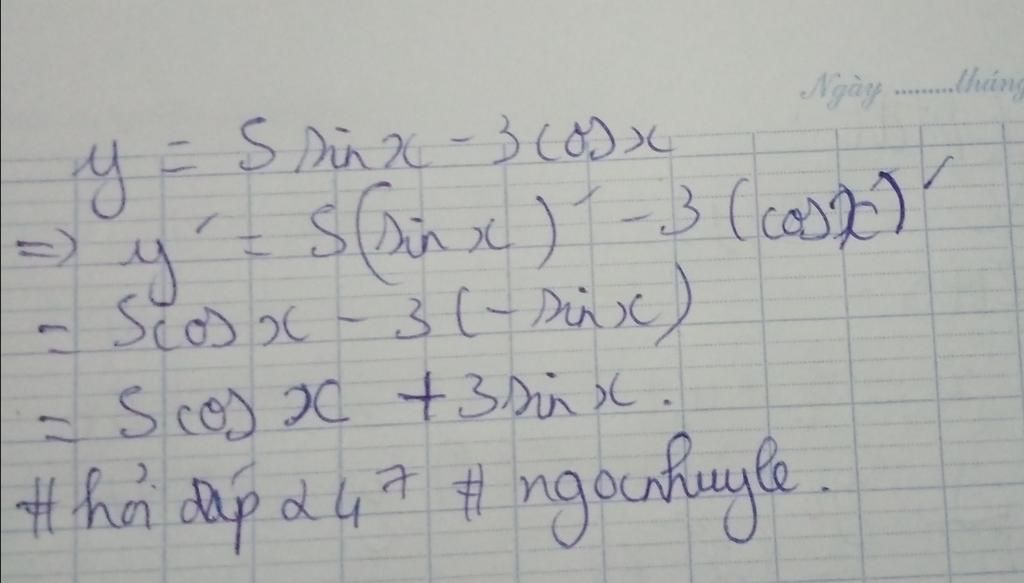 Ngày .........tháng
y = 5 sin x - 3 cos x
=> y' = 5(sin x)' - 3 (cos x)'
= 5cos x - 3 (- sin x)
= 5 cos x + 3 sin x.
# hỏi đáp 247 # ngocnhuyle.